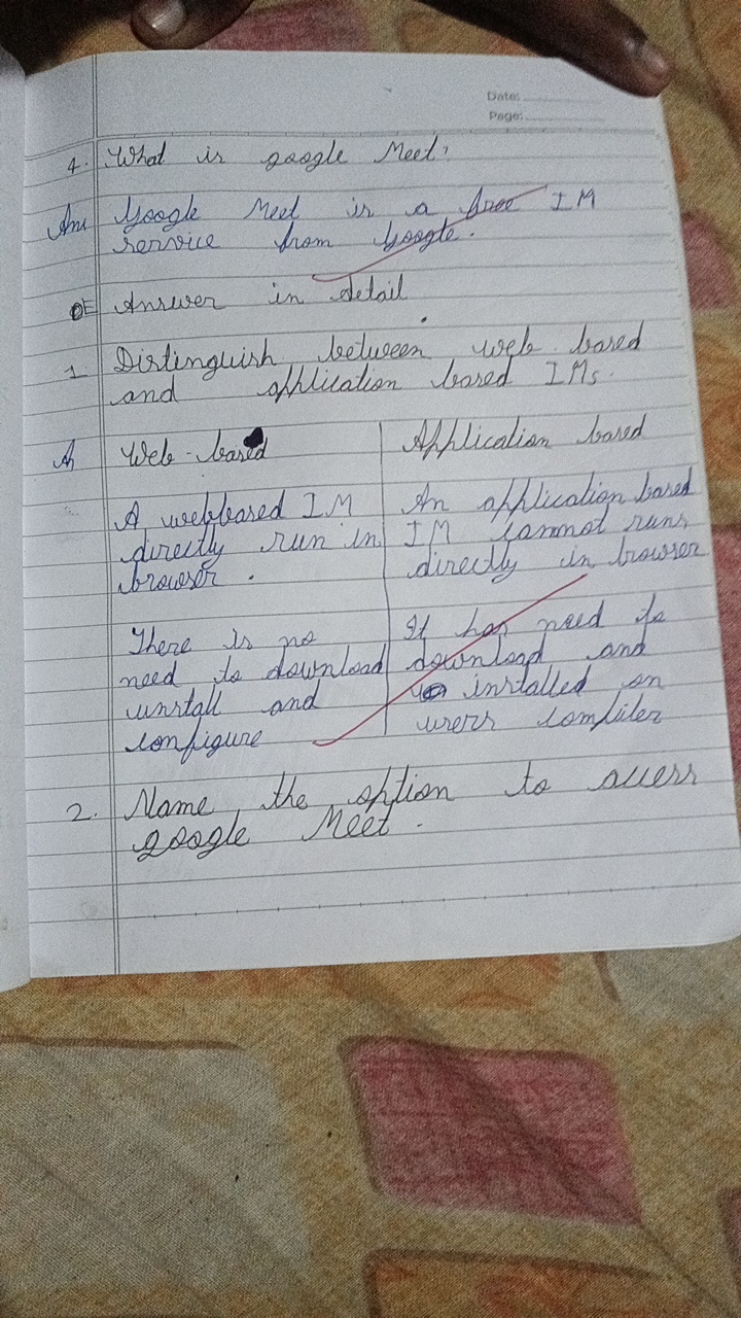 Date:
Page:
4. What is google Meet?
Ans Google Meet is a free IM
service from Google.
E Answer in detail
1 Distinguish between web based
and application based IMs.
A Web-based
A webbased IM
directly run in
browser.
There is no
need to download
unstall and
configure
Application based
An application based
IM cannot runs
directly in browser
It has need to
download and
installed on
users compiler
2. Name the option to access
google Meet.